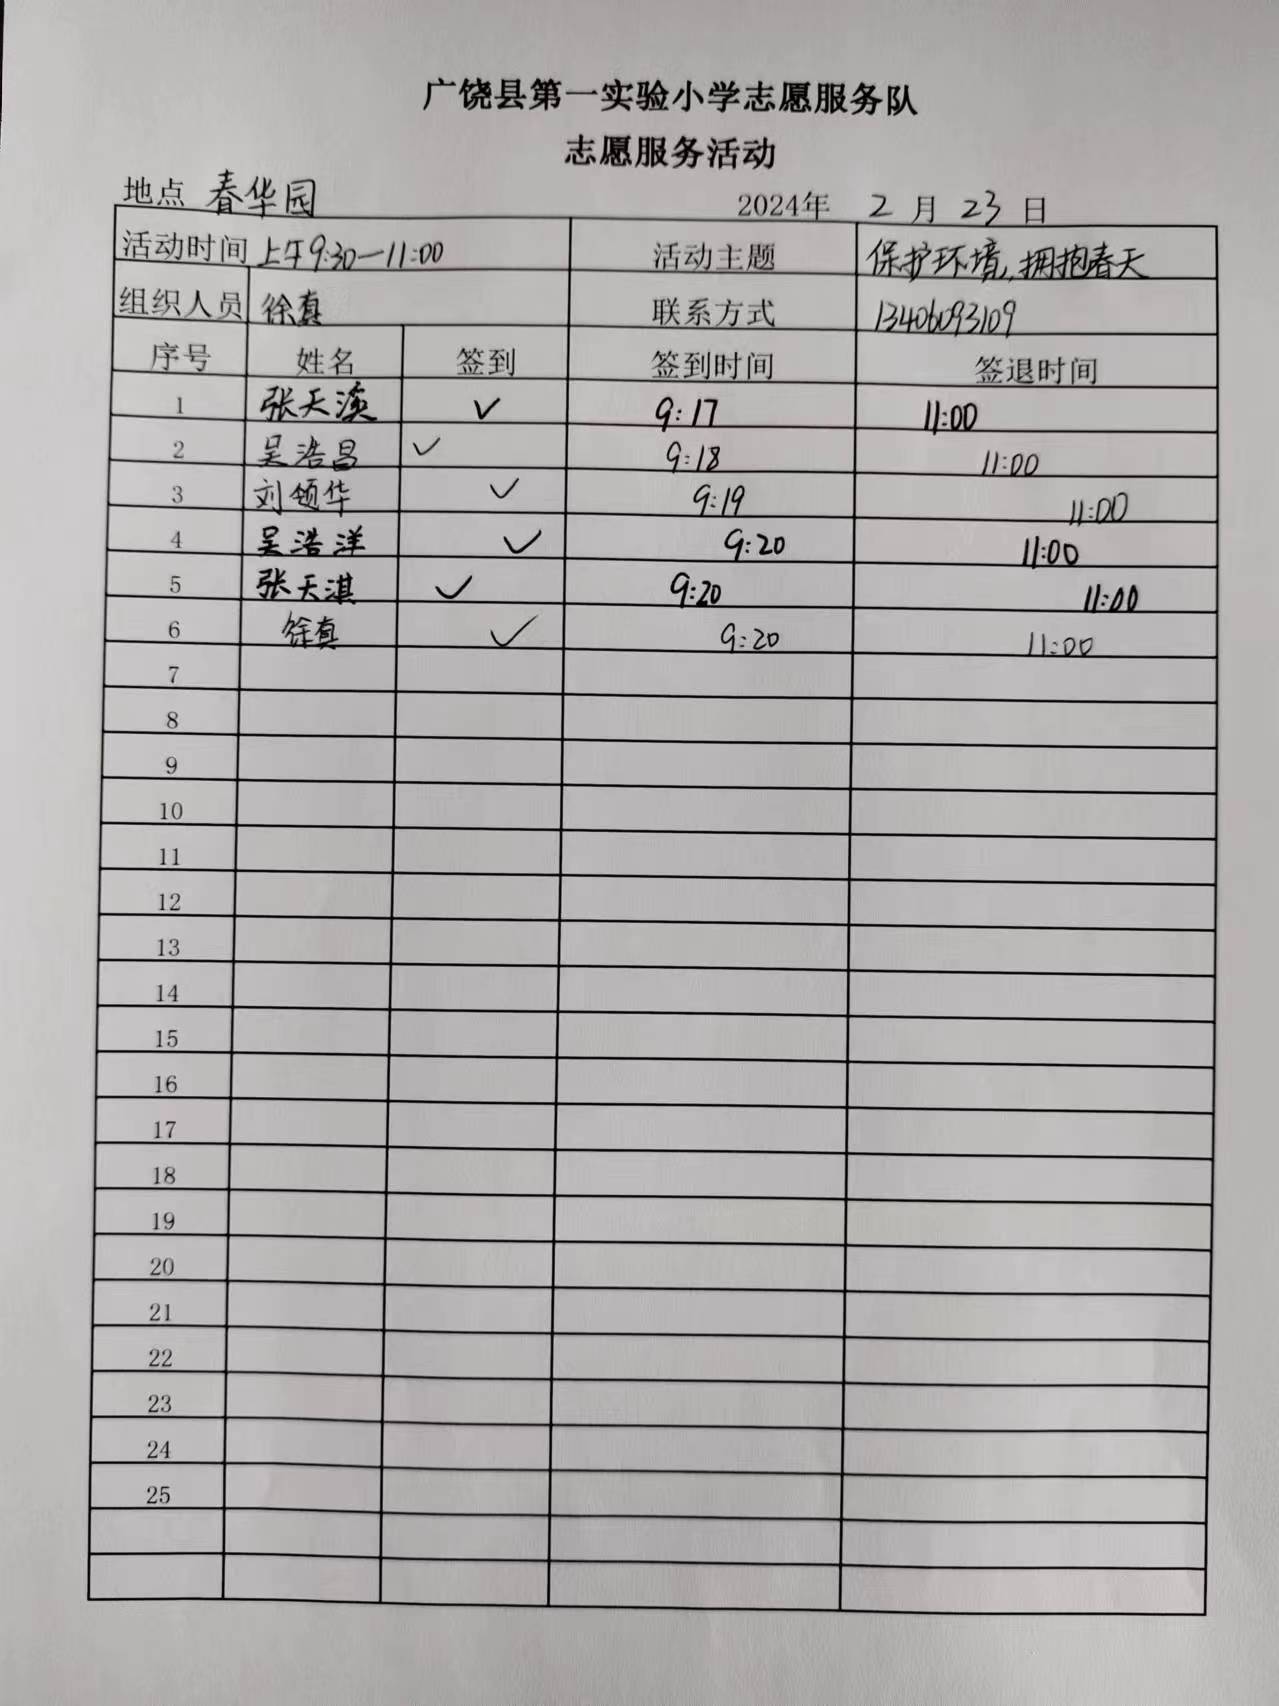 广饶县第一实验小学志愿服务队
志愿服务活动
地点 春华园 2024年 2 月 23 日
活动时间 上午9:30—11:00 活动主题 保护环境,拥抱春天
组织人员 徐真 联系方式 13406093109
序号 姓名 签到 签到时间 签退时间
1 张天溪 ✓ 9:17 11:00
2 吴浩昌 ✓ 9:18 11:00
3 刘领华 ✓ 9:19 11:00
4 吴浩洋 ✓ 9:20 11:00
5 张天淇 ✓ 9:20 11:00
6 徐真 ✓ 9:20 11:00
7
8
9
10
11
12
13
14
15
16
17
18
19
20
21
22
23
24
25